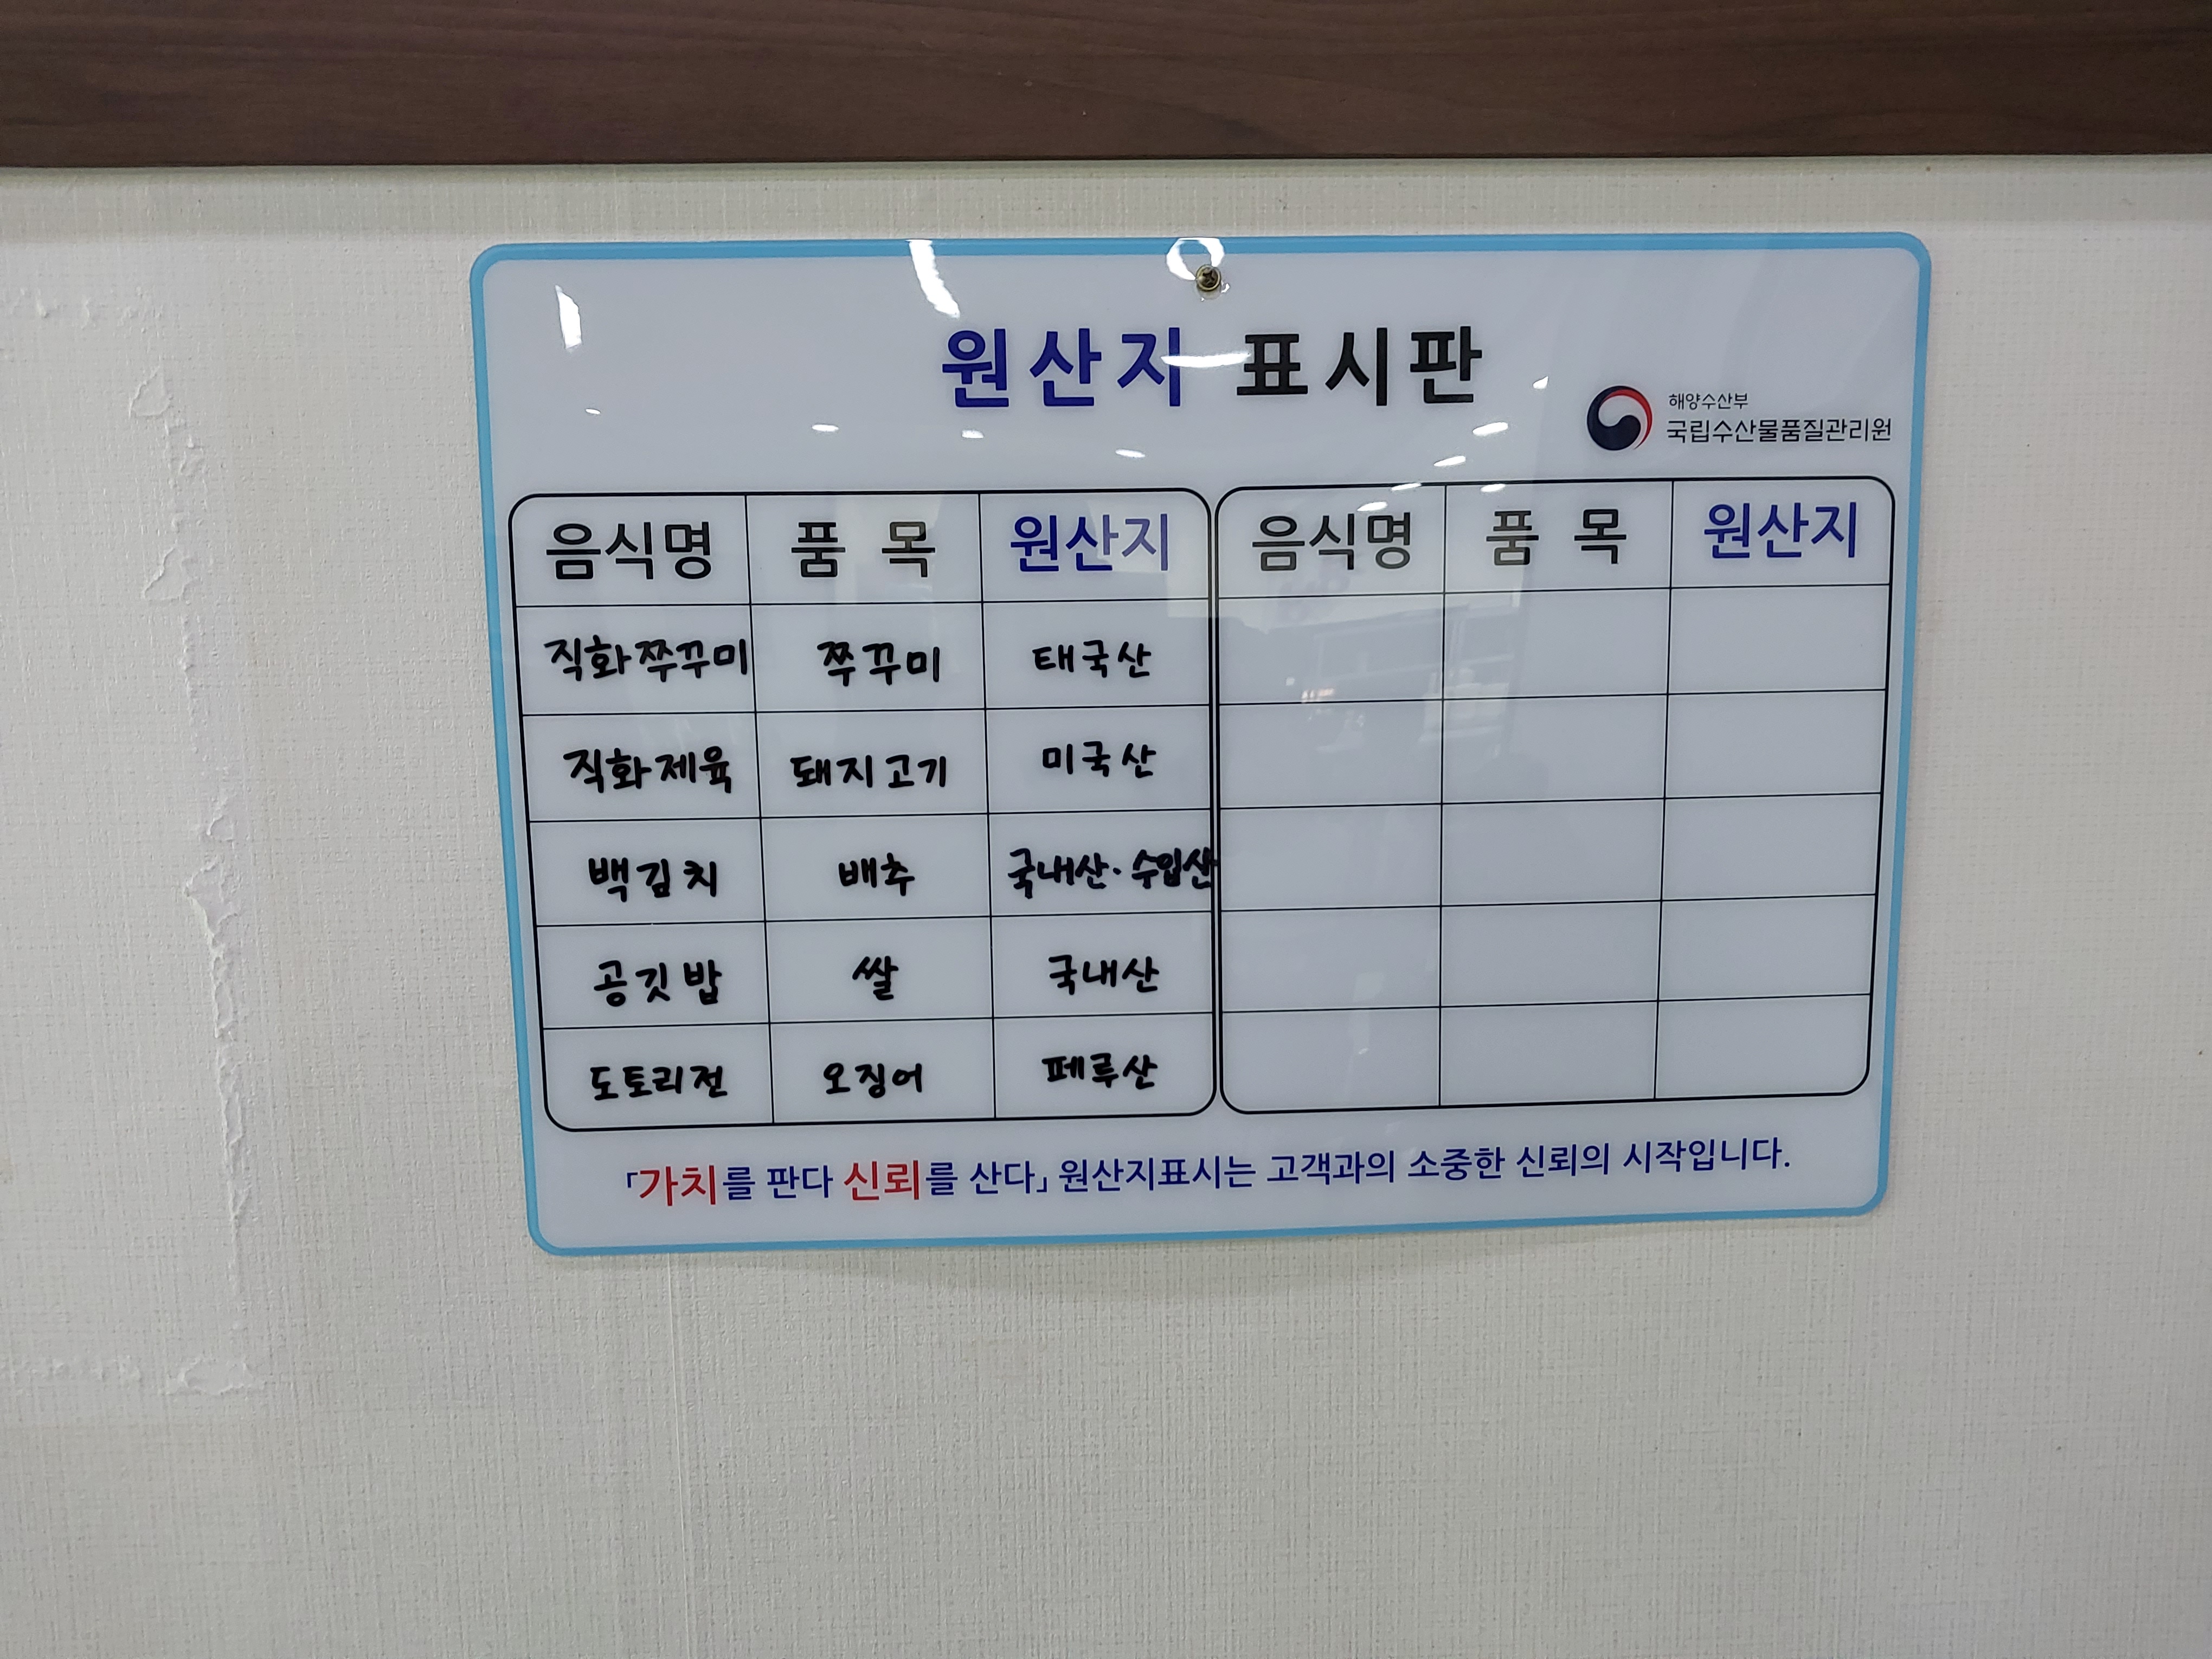 원산지 표시판
해양수산부
국립수산물품질관리원
음식명 품 목 원산지 음식명 품 목 원산지
직화쭈꾸미 쭈꾸미 태국산
직화제육 돼지고기 미국산
백김치 배추 국내산·수입산
공깃밥 쌀 국내산
도토리전 오징어 페루산
「가치를 판다 신뢰를 산다」 원산지표시는 고객과의 소중한 신뢰의 시작입니다.